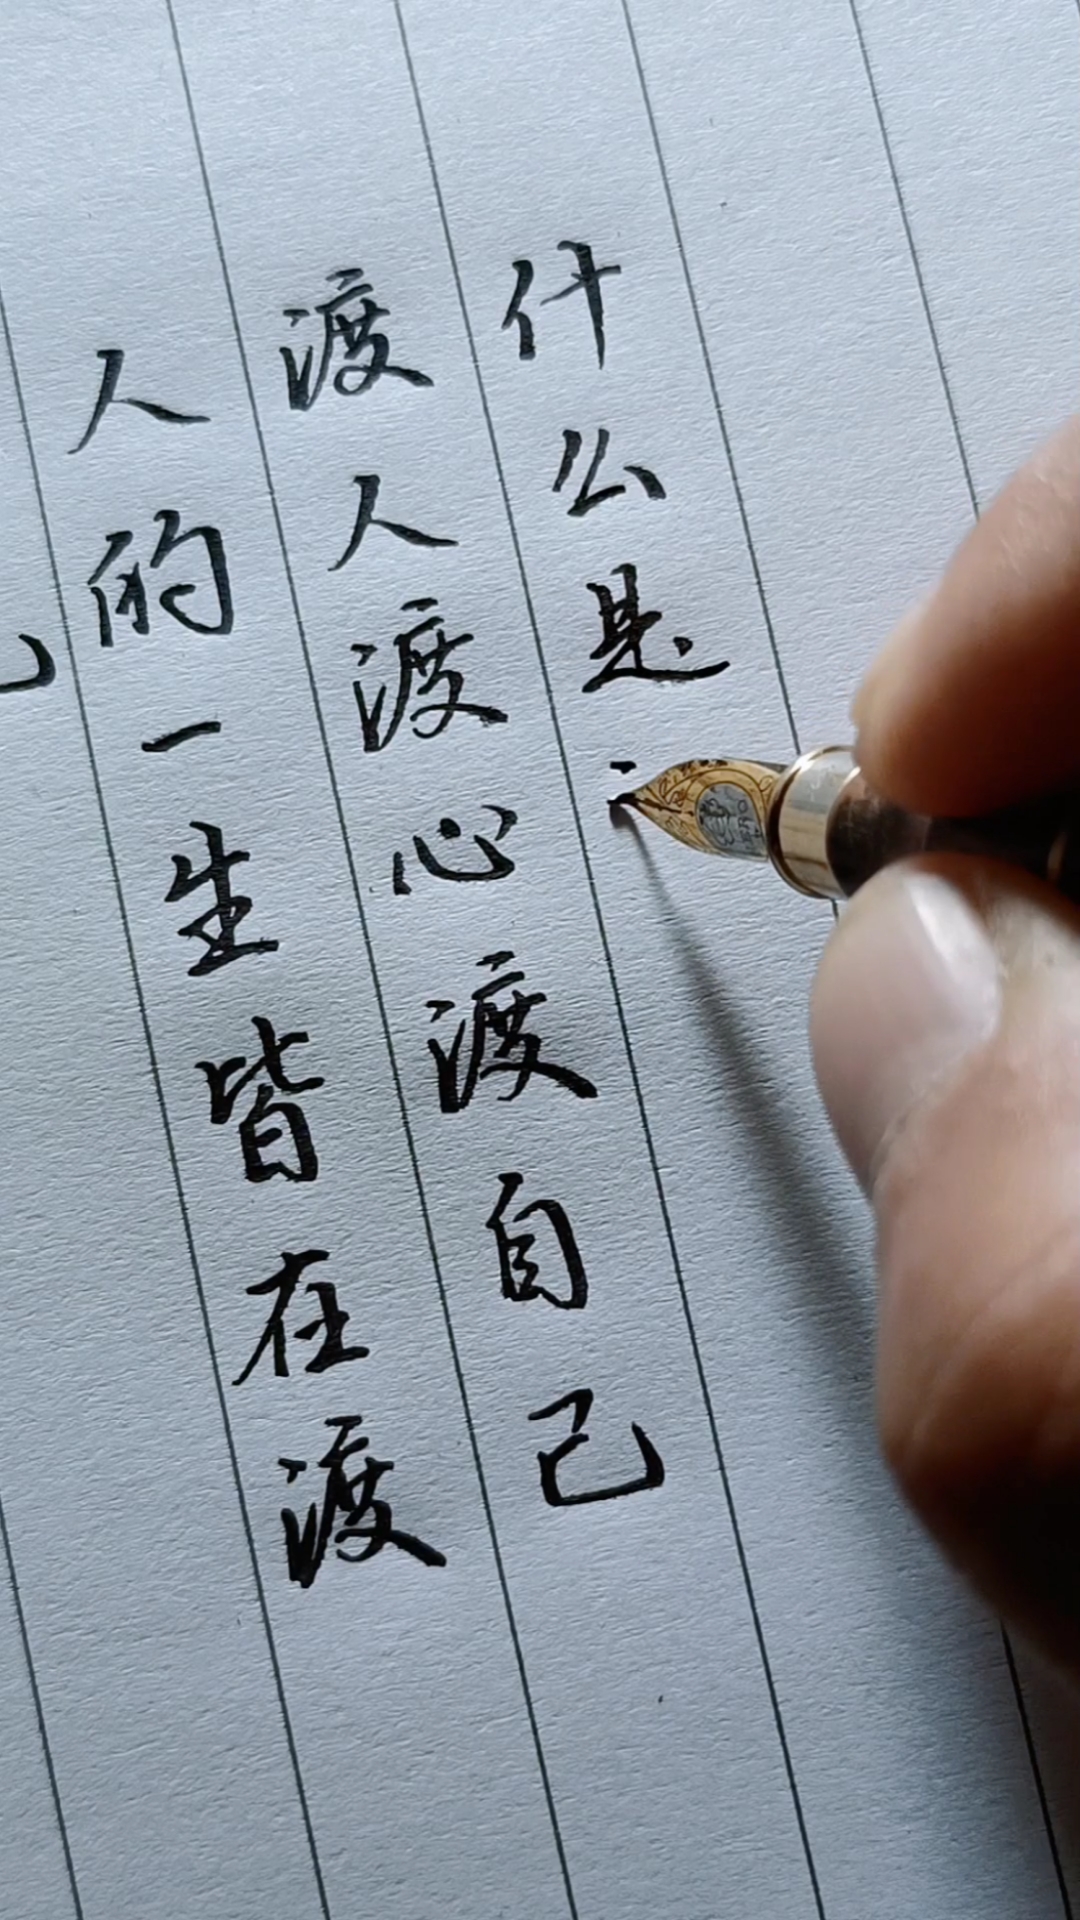 人的一生皆在渡
渡人渡心渡自己
什么是